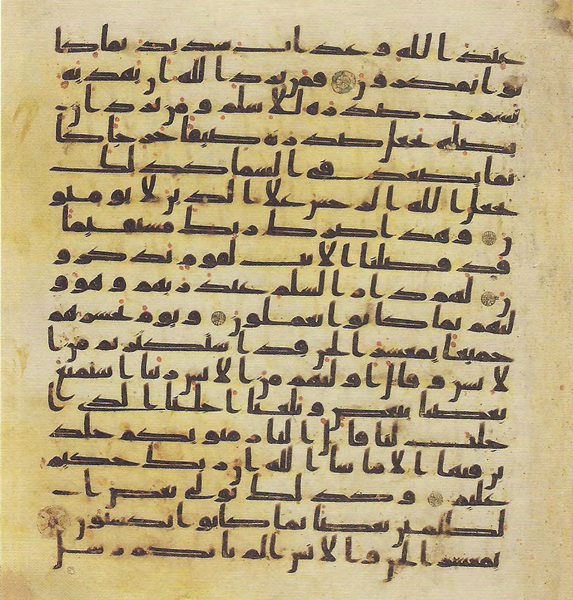 عند الله وعذاب شديد بما كا
نوا يمكرون فمن يرد الله ان يهديه
يشرح صدره للاسلم ومن يرد ان
يضله يجعل صدره ضيقا حرجا كا
نما يصعد في السما كذلك
يجعل الله الرجس علا الذين لا يومنو
ن وهذا صرط ربك مستقيما
قد فصلنا الايت لقوم يذكرو
ن لهم دار السلم عند ربهم وهو و
ليهم بما كانوا يعملون ويوم يحشرهم
جميعا يمعشر الجن قد استكثرتم من ا
لانس وقال اوليهم من الانس ربنا استمتع
بعضنا ببعض وبلغنا اجلنا الذي ا
جلت لنا قال النار مثويكم خلد
ين فيها الا ما شا الله ان ربك حكيم
عليم وكذلك نولي بعض ا
لظلمين بعضا بما كانوا يكسبون
يمعشر الجن والانس الم ياتكم رسل